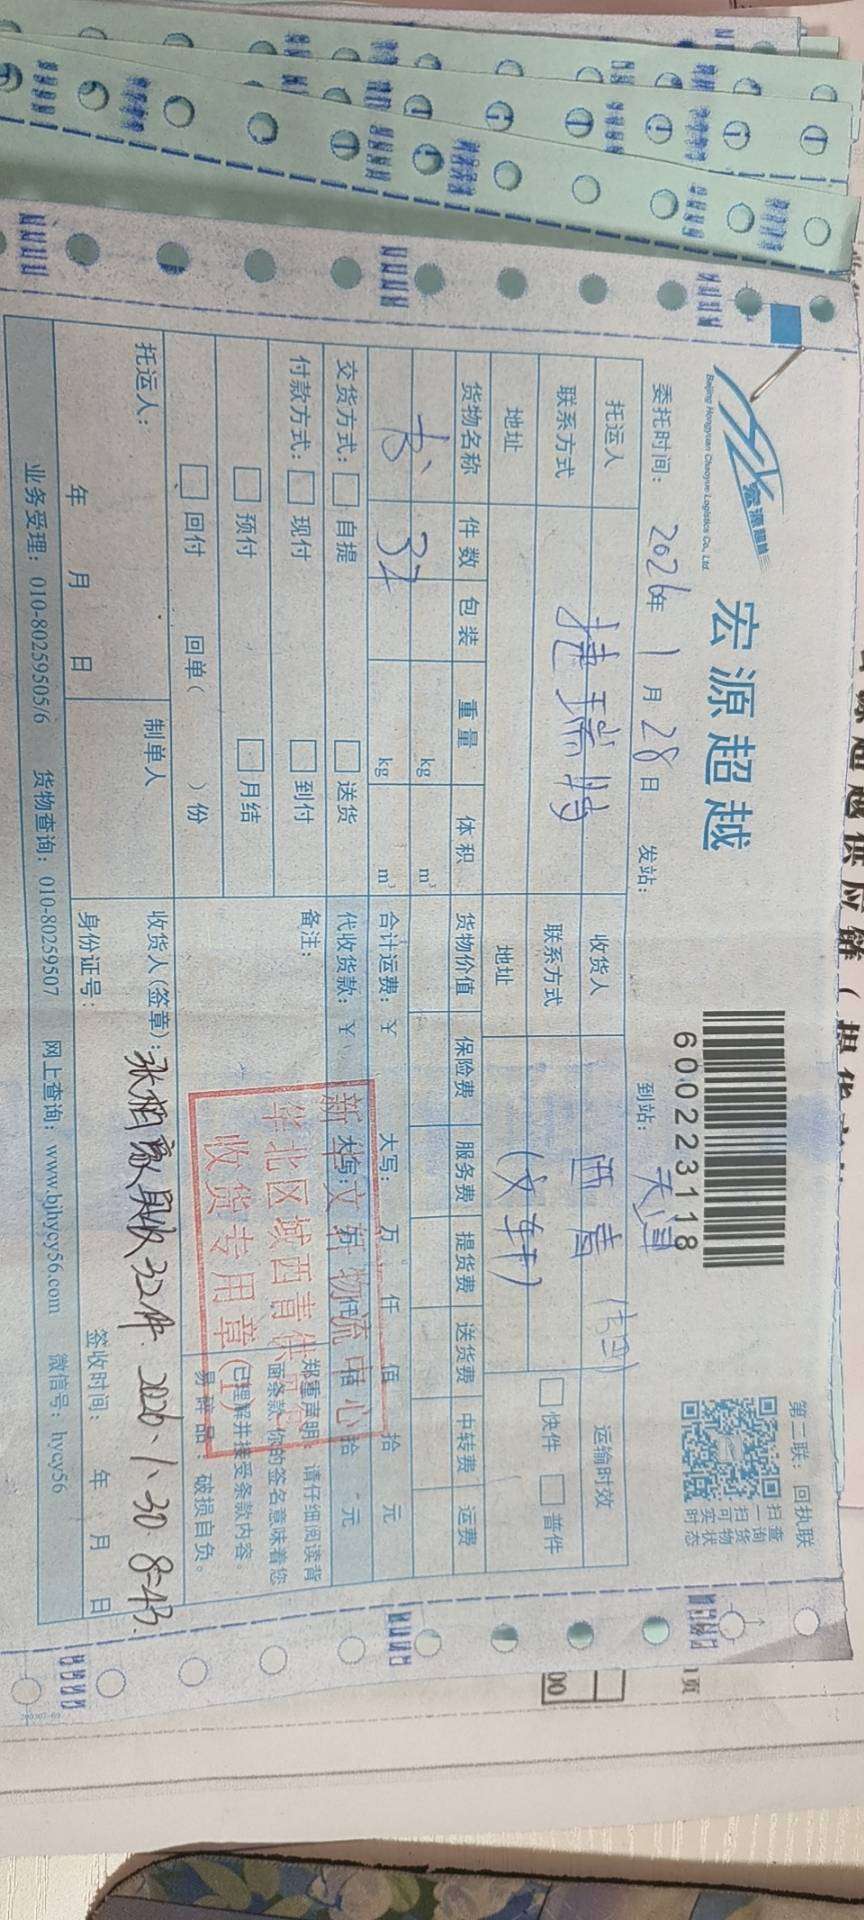 宏源超越
Beijing Hongyuan Chaoyue Logistics Co., Ltd
宏源超越
600223118
第二联：回执联
扫一扫可实时
查询货物状态
委托时间：2026年1月28日 发站： 到站：天津
托运人 捷瑞特 收货人 西青
联系方式 联系方式 (文轩)
地址 地址
运输时效
快件 普件
货物名称 件数 包装 重量 体积 货物价值 保险费 服务费 提货费 送货费 中转费 运费
kg m³
书 32 kg m³
合计运费：¥ 大写： 万 仟 佰 拾 元
交货方式： 自提 送货 代收货款：¥ 大写： 仟 佰 拾 元
付款方式： 现付 到付 备注：
预付 月结
回付 回单( )份
郑重声明：请仔细阅读背
面条款，你的签名意味着您
已理解并接受条款内容。
易碎品，破损自负。
新华文轩物流中心
华北区域西青
收货专用章
托运人： 制单人 收货人(签章)：实收32件 2026.1.30 8:43
年 月 日 身份证号： 签收时间： 年 月 日
业务受理：010-80259505/6 货物查询：010-80259507 网上查询：www.bjhycy56.com 微信号：hycy56
1页
00